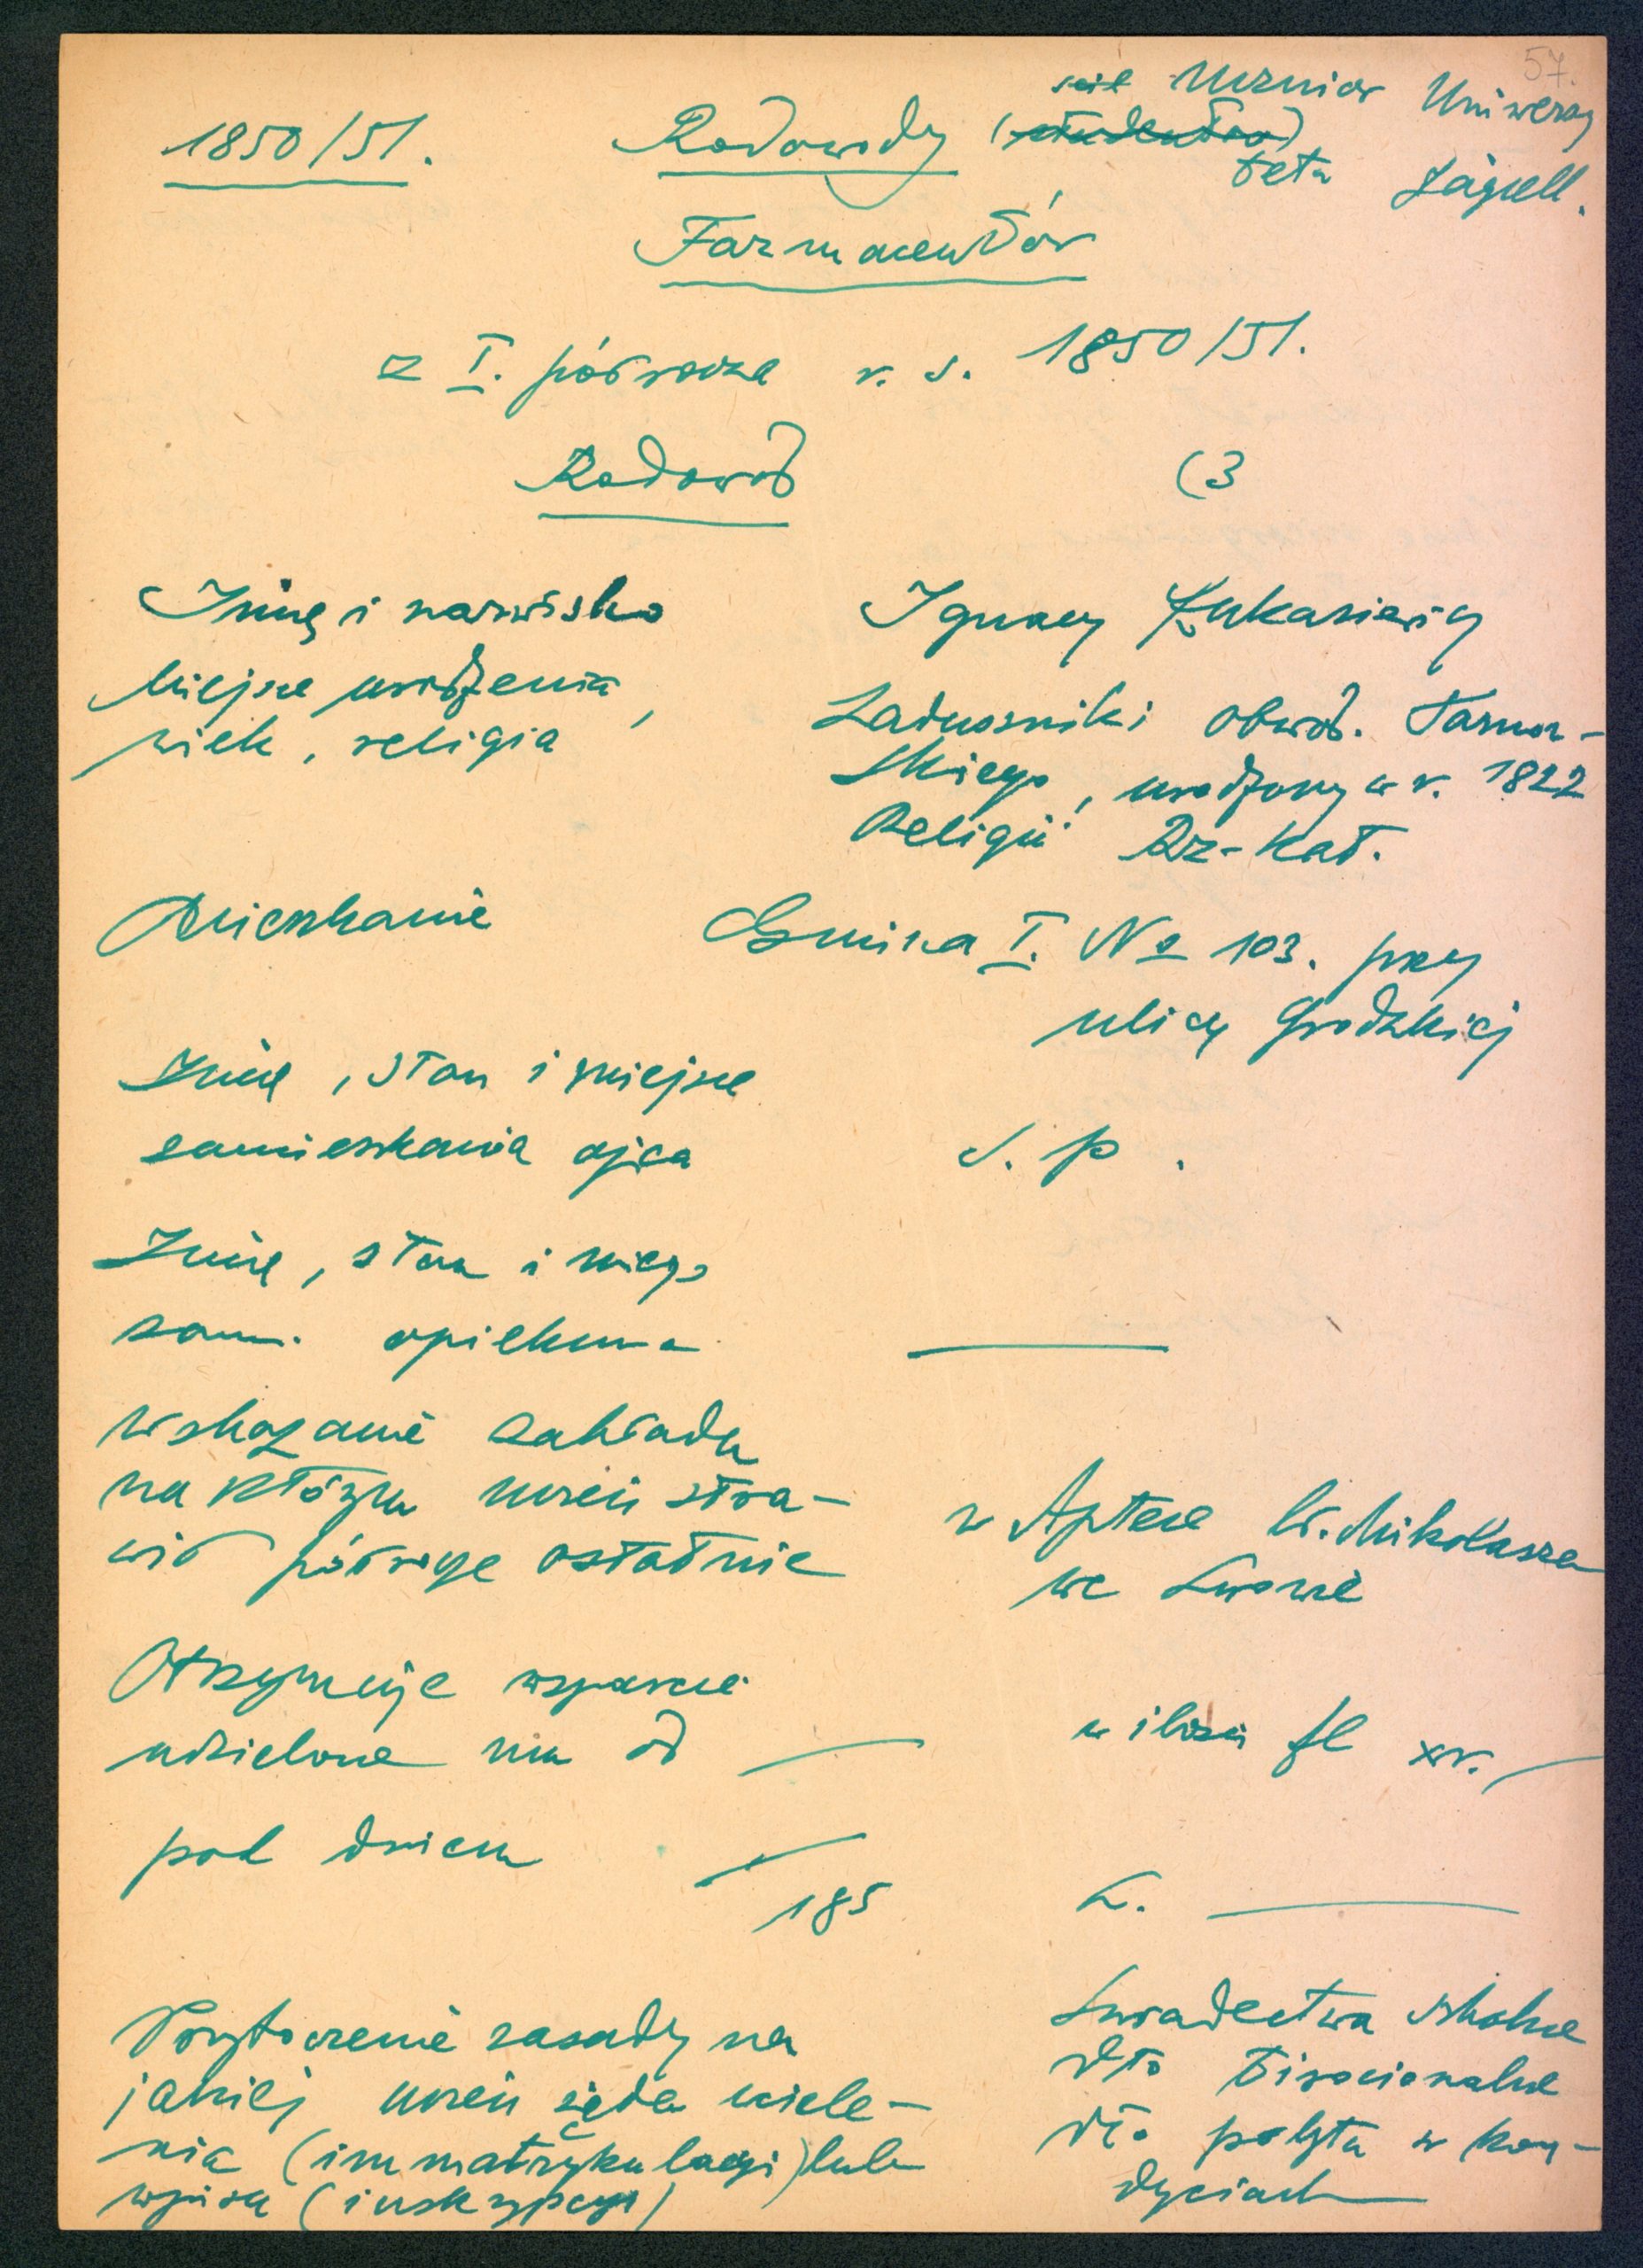 57.
1850/51. Rodowody (studentów) Uczniów Uniwersy
tetu Jagiell.
Farmaceutów
z I. półrocza r. s. 1850/51.
Rodowód (3
Imię i nazwisko Ignacy Łukasiewicz
Miejsce urodzenia,
wiek, religia
Zaduszniki obwod. Tarnow-
skiego, urodzony w r. 1822
Religii Rz-Kat.
Mieszkanie Gmina I. No 103. przy
ulicy Grodzkiej
Imię, stan i miejsce
zamieszkania ojca Ś. p.
Imię, stan i miejs
zam. opiekuna —
Wskazanie zakładu
na którym uczeń stra-
wił półrocze ostatnie
w Aptece W. Mikolasza
we Lwowie
Otrzymuje wsparcie
udzielone mu od — w ilości fl xr. —
pod dniem —
185 L. —
Przytoczenie zasady na
jakiej uczeń żąda wciele-
nia (immatrykulacji) lub
wpisu (inskrypcyi)
Świadectwa szkolne
dto tirocionalne
dto pobytu w kon-
dyciach